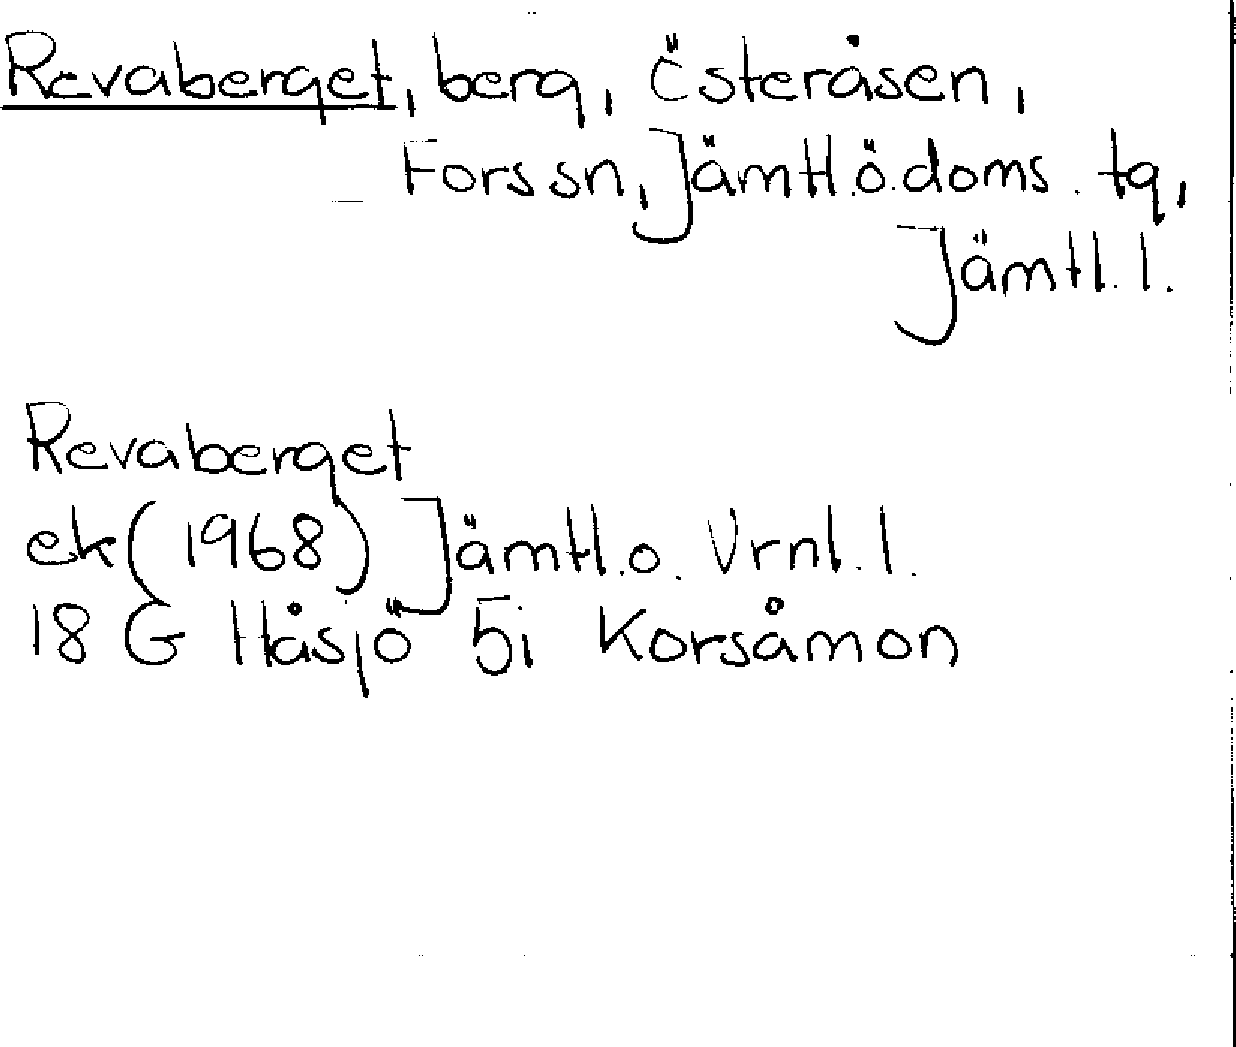 Revaberget, berg, Österåsen,
Fors sn, Jämtl.ö.doms.tg,
Jämtl.l.
Revaberget
ek (1968) Jämtl.o. Vrnl.l.
18 G Håsjö 5i Korsåmon